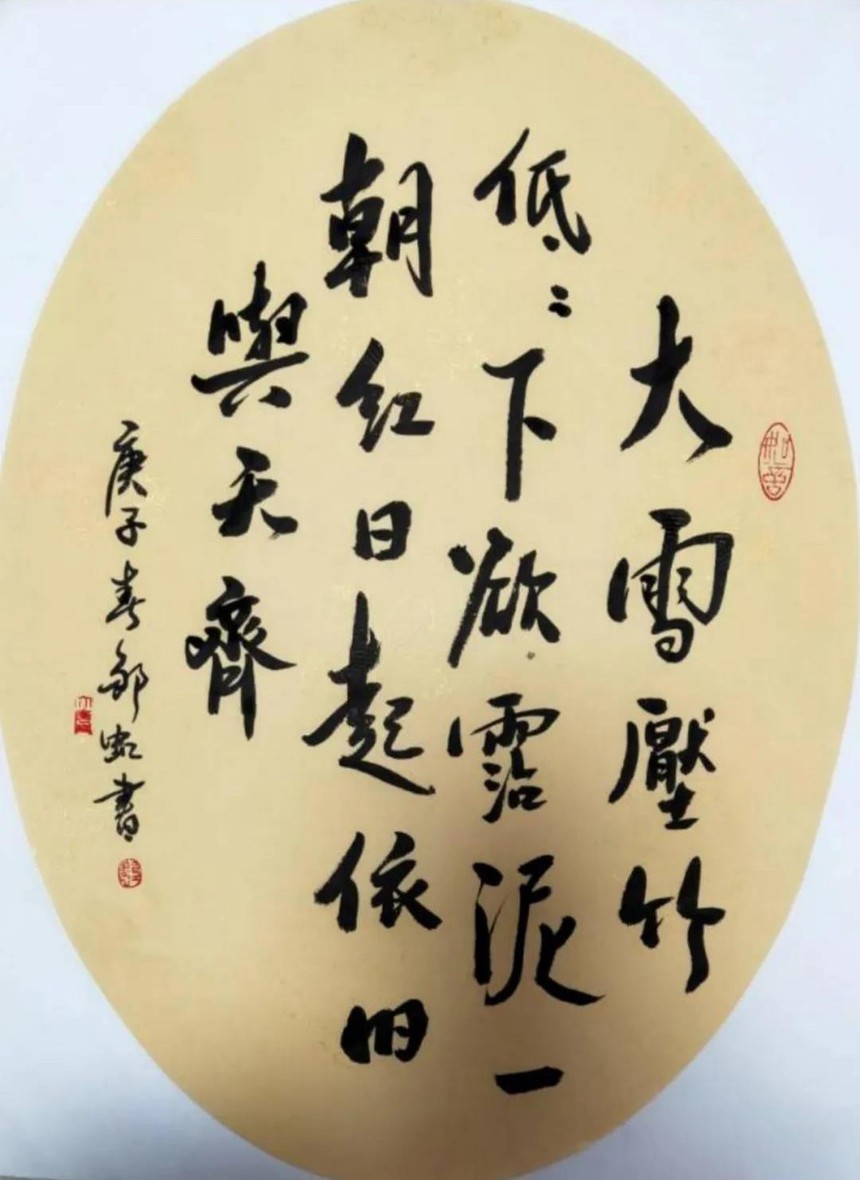 大雪壓竹
低〻下欲霑泥一
朝紅日起依旧
與天齊
庚子春邹虹書